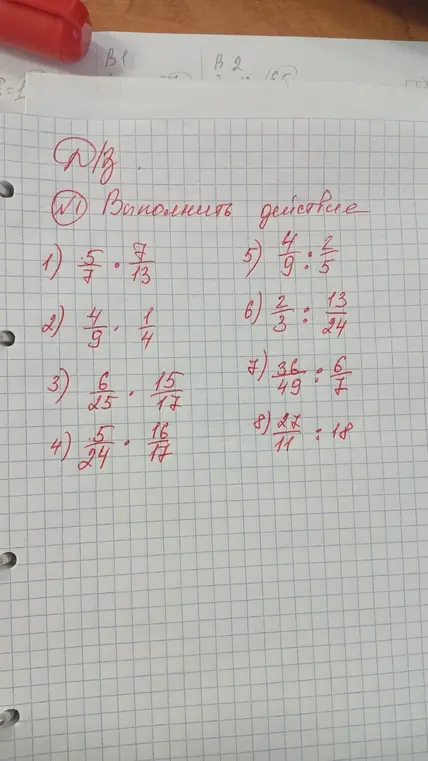 В 1 В 2
Д/З.
№1 Выполнить действие
1) 5/7 · 7/13
2) 4/9 · 1/4
3) 6/25 · 15/17
4) 5/24 · 16/17
5) 4/9 : 2/5
6) 2/3 : 13/24
7) 36/49 : 6/7
8) 27/11 : 18